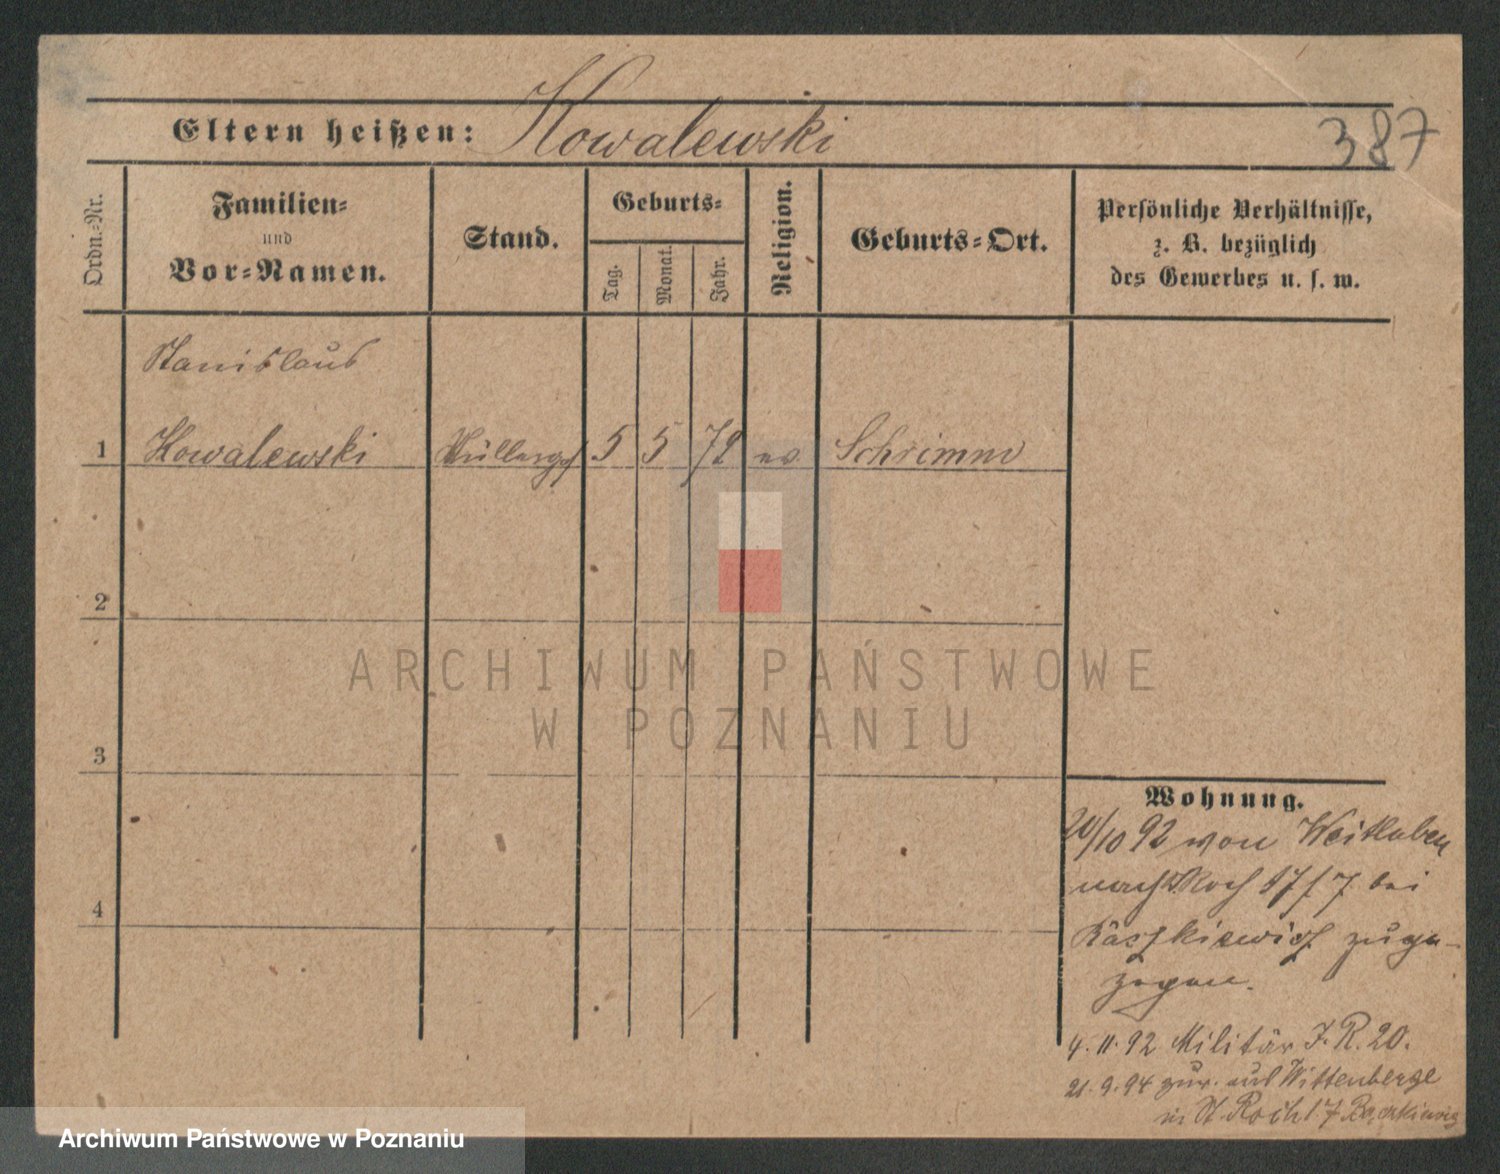 Eltern heißen: Kowalewski
387
Ordn.-Nr.
Familien-
und
Vor-Namen.
Stand.
Geburts-
Tag.
Monat.
Jahr.
Religion.
Geburts-Ort.
Persönliche Verhältnisse,
z. B. bezüglich
des Gewerbes u. s. w.
Stanislaus
1 Kowalewski Müllerges 5 5 72 ev Schrimm
2
3
4
Wohnung.
20/10 92 von
nach St Roch 17/7 bei
zuge-
zogen.
4.11.92 Militär J.R.20.
21.9.94 zur. aus Wittenberge
in St. Roch 17
ARCHIWUM PAŃSTWOWE
W POZNANIU
Archiwum Państwowe w Poznaniu